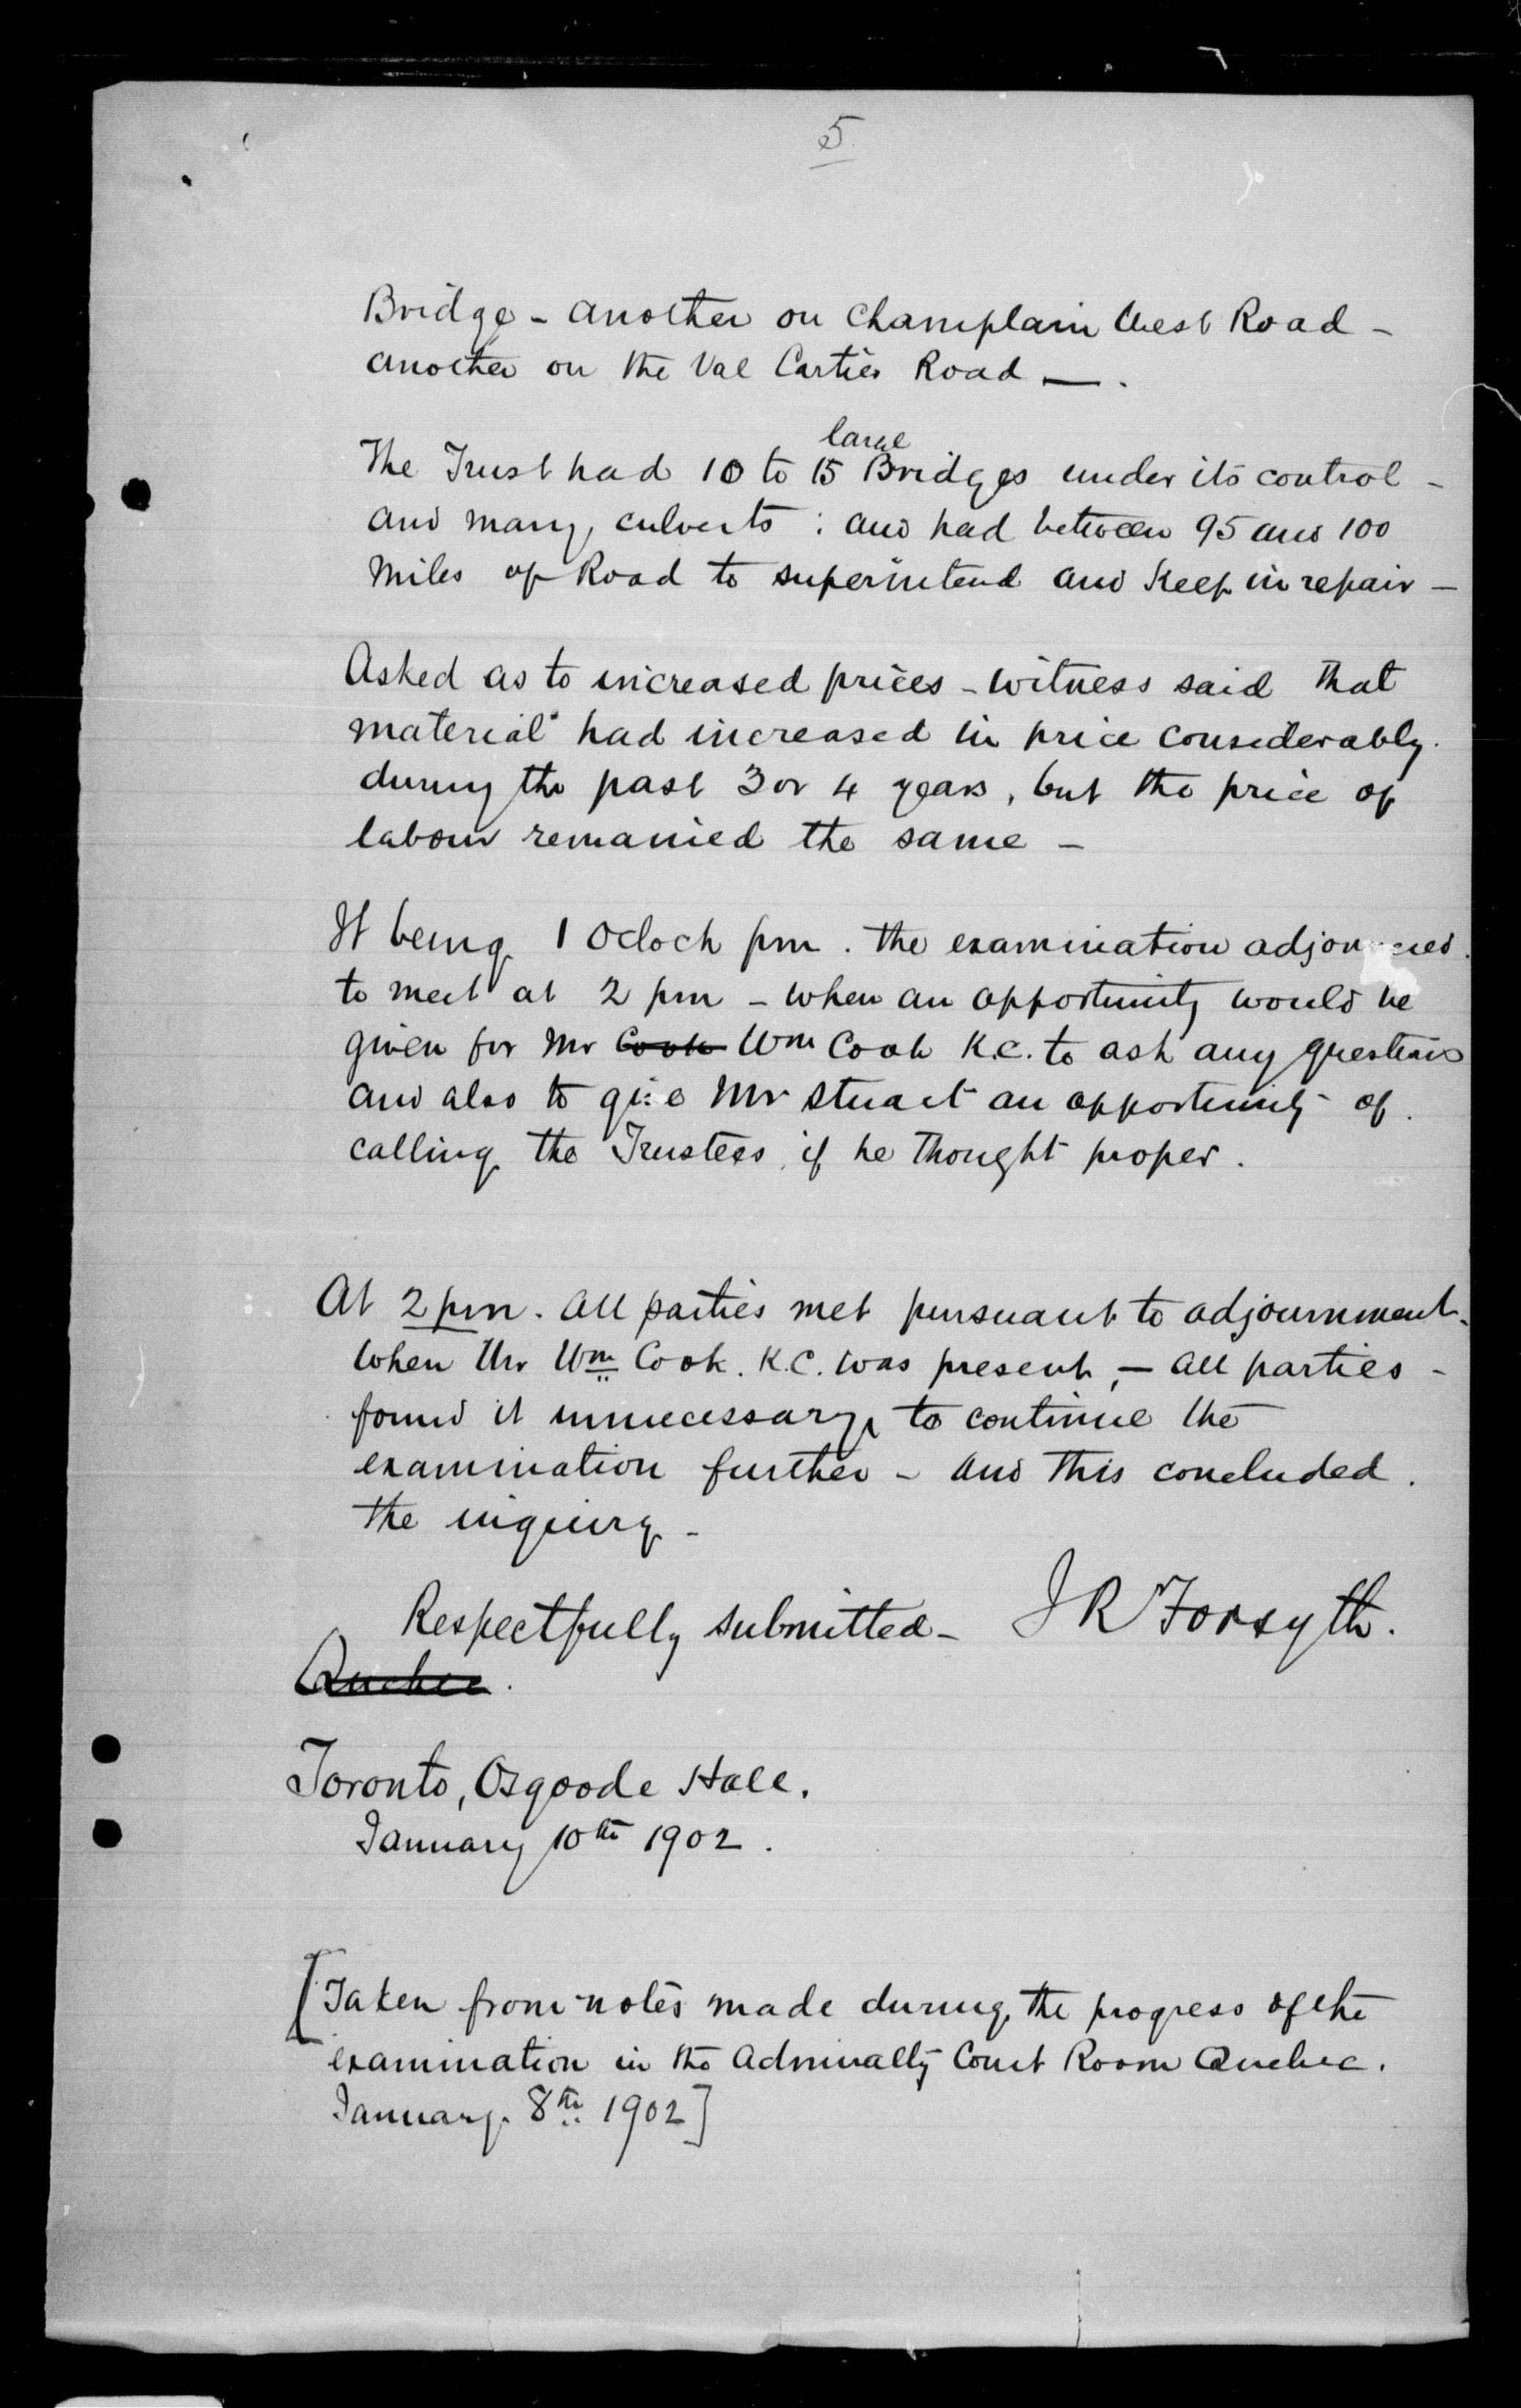 5
Bridge - another on Champlain West Road -
another on the Val Cartier Road - .
large
The Trust had 10 to 15 Bridges under its control -
and many culverts : and had between 95 and 100
miles of Road to superintend and keep in repair -
Asked as to increased prices - witness said that
material had increased in price considerably
during the past 3 or 4 years, but the price of
labour remained the same -
It being 1 Oclock pm . the examination adjourned
to meet at 2 pm - when an opportunity would be
given for Mr Cook Wm Cook K.C. to ask any questions
and also to give Mr Stuart an opportunity of
calling the Trustees if he thought proper .
At 2 pm . all parties met pursuant to adjournment
when Mr Wm Cook . K.C. was present , - all parties -
found it unnecessary to continue the
examination further - and this concluded .
the inquiry -
Respectfully submitted - J R Forsyth .
Quebec .
Toronto, Osgoode Hall .
January 10th 1902 .
[Taken from notes made during the progress of the
examination in the Admiralty Court Room Quebec .
January 8th 1902]